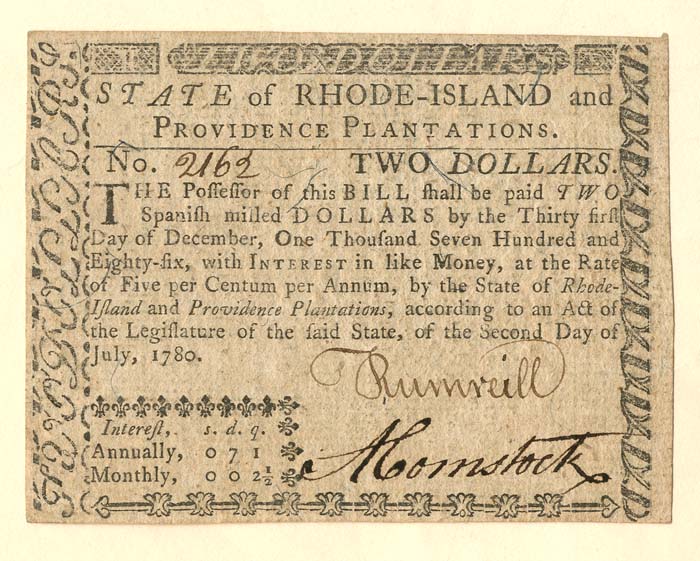 TWO DOLLARS
STATE of RHODE-ISLAND and
PROVIDENCE PLANTATIONS.
No. 2162 TWO DOLLARS.
THE Poſſeſſor of this BILL ſhall be paid TWO
Spaniſh milled DOLLARS by the Thirty firſt
Day of December, One Thouſand Seven Hundred and
Eighty-ſix, with INTEREST in like Money, at the Rate
of Five per Centum per Annum, by the State of Rhode-
Iſland and Providence Plantations, according to an Act of
the Legiſlature of the ſaid State, of the Second Day of
July, 1780.
TRumreill
AComstock
Intereſt, s. d. q.
Annually, 0 7 1
Monthly, 0 0 2½